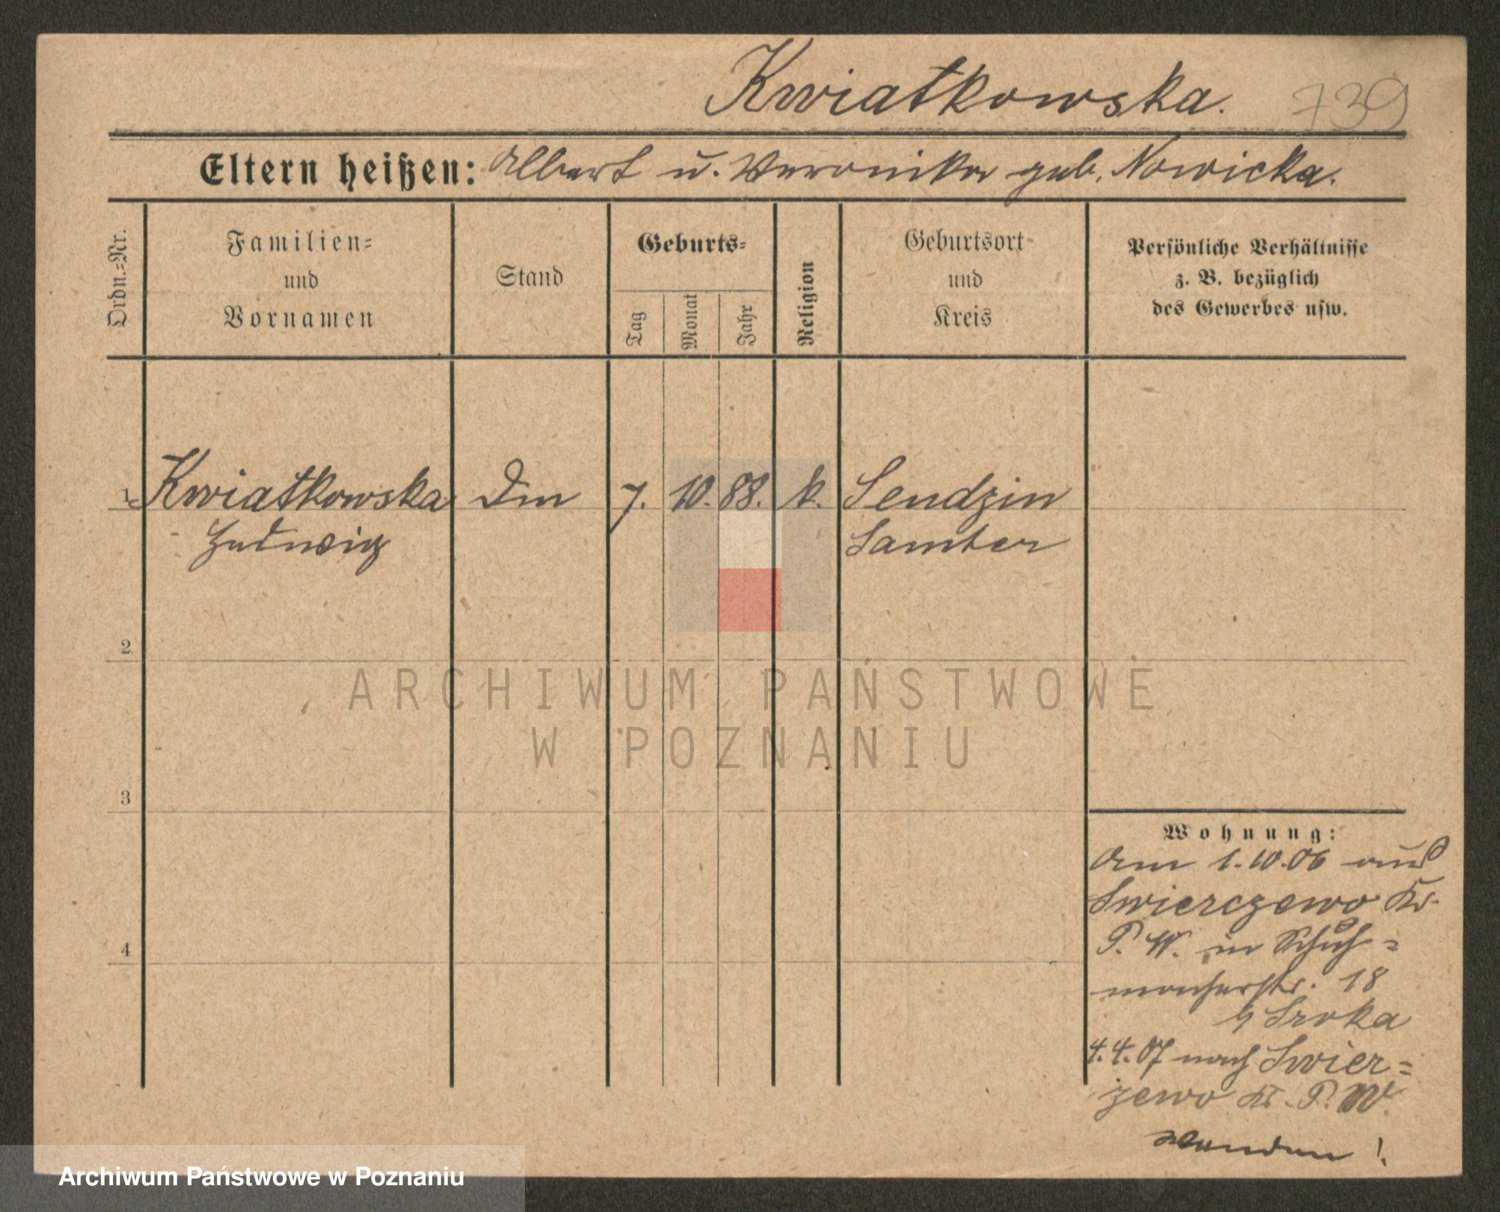 Kwiatkowska.
739
Eltern heißen: Albert u. Veronika geb. Nowicka.
Ordn.=Nr.
Familien=
und
Vornamen
Stand
Geburts=
Tag
Monat
Jahr
Religion
Geburtsort
und
Kreis
Persönliche Verhältnisse
z. B. bezüglich
des Gewerbes usw.
1 Kwiatkowska Dm 7. 10. 88. k. Sendzin
Hedwig Samter
2
ARCHIWUM PAŃSTWOWE
W POZNANIU
3
4
Wohnung:
Am 1.10.06 aus
Swierczewo Kr.
P. W. in Schuh=
macherstr. 18
b Sroka
4.4.07 nach Swier=
zewo Kr. P. W
wenden!
Archiwum Państwowe w Poznaniu